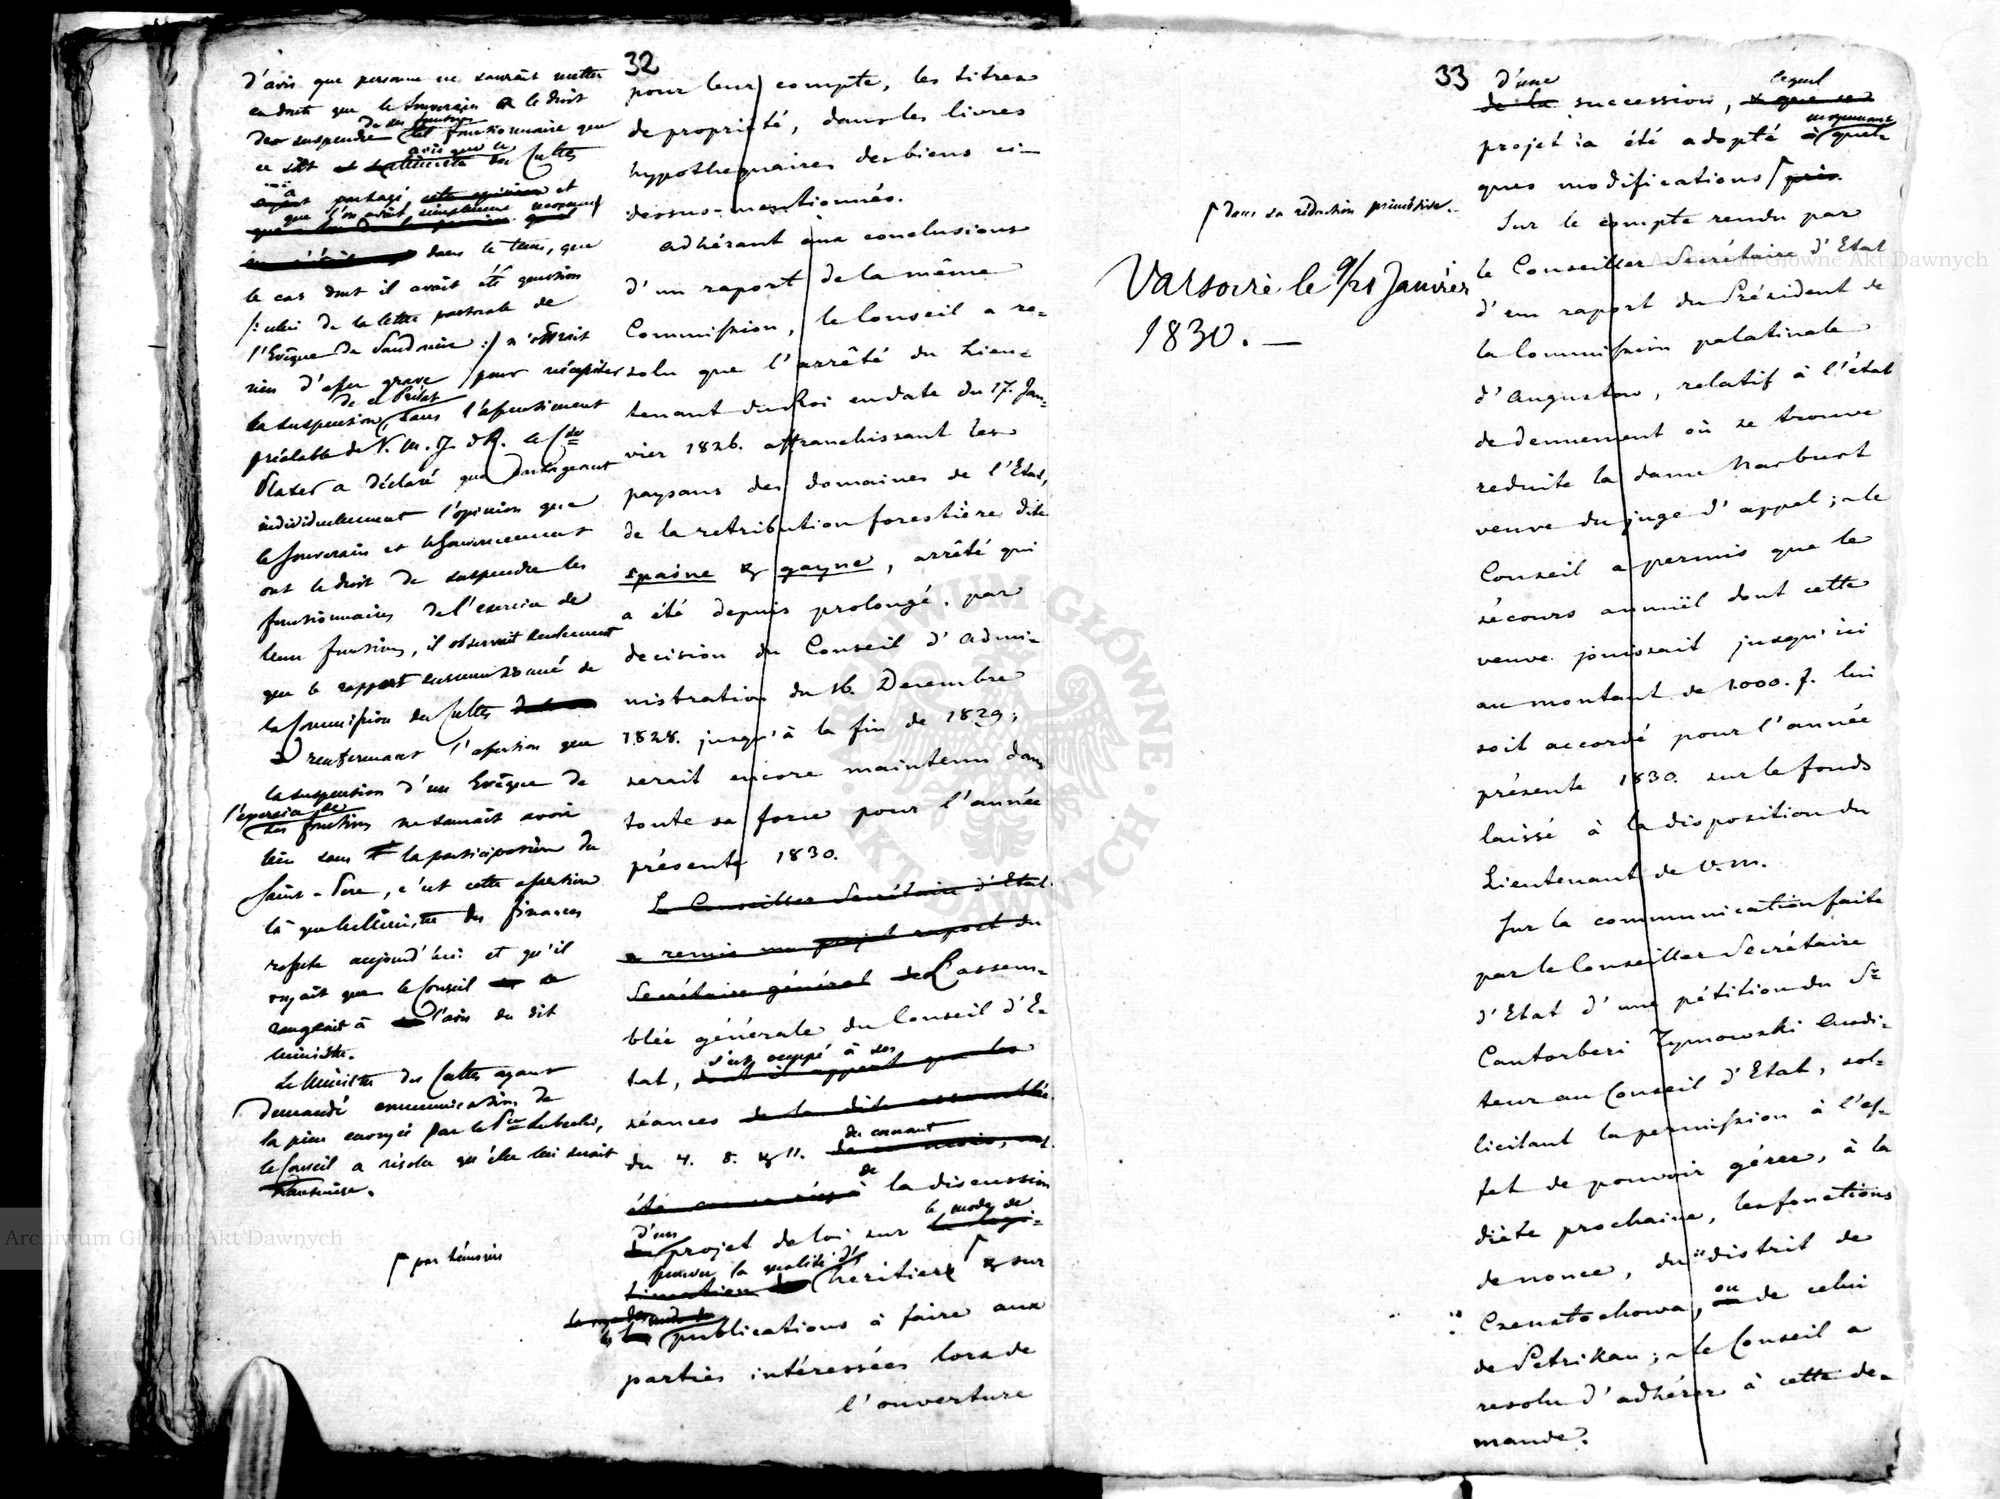 32
d'avis que personne ne saurait mettre
en doute que le Souverain a le droit
de suspendre de ses fonctions tel fonctionnaire que
ce soit avis que le Ministre des Cultes
a partagé et
que l'on avait simplement
dans le tems, que
le cas dont il avait été question
/: celui de la lettre pastorale de
l'Evêque de Sandomir :/ n'offrait
rien d'assez grave pour nécessiter
la suspension de ce Prélat, sans l'assentiment
préalable de V. M. I. & R. le Cte
Plater a déclaré que partageant
individuellement l'opinion que
le Souverain et le Gouvernement
ont le droit de suspendre les
fonctionnaires de l'exercice de
leurs fonctions, il observait seulement
que le rapport susmentionné de
la Commission des Cultes
renfermant l'assertion que
la suspension d'un Evêque de
l'exercice de
ses fonctions ne saurait avoir
lieu sans la participation du
Saint-Père, c'est cette assertion
là que le Ministre des finances
refute aujourd'hui et qu'il
croyait que le Conseil se
rangeait à l'avis du dit
Ministre.
Le Ministre des Cultes ayant
demandé communication de
la pièce envoyée par le Pce Lubecki,
le Conseil a résolu qu'elle lui serait
transmise.
par témoins
pour leur compte, les titres
de propriété, dans les livres
hypothequaires des biens ci-
dessus-mentionnés.
Adhérant aux conclusions
d'un raport de la même
Commission, le Conseil a re-
solu que l'arrêté du Lieu-
tenant du Roi en date du 17. Jan-
vier 1826. affranchissant les
paysans des domaines de l'Etat,
de la retribution forestière dite
spasne & gayne, arrêté qui
a été depuis prolongé, par
decision du Conseil d'Admi-
nistration du 16. Decembre
1828. jusqu'à la fin de 1829;
serait encore maintenu dans
toute sa force pour l'année
présente 1830.
Le Conseiller Secrétaire d'Etat
a remis un projet raport du
Secrétaire général de L'assem-
blée générale du Conseil d'E-
s'est occupé à ses
tat, dont il appert que les
séances de la dite assemblée
du courant
du 4. 8. & 11. de
été de la discussion
d'un le mode de
projet de loi sur
prouver la qualité d'
heritier & sur
les publications à faire aux
parties intéressées lors de
l'ouverture
33
dans sa rédaction primitive.
Varsovie le 9/21 Janvier
1830. —
d'une lequel
de la succession,
moyennant
projet a été adopté à quel-
ques modifications près.
Sur le compte rendu par
le Conseiller Secrétaire d'Etat
d'un raport du Président de
la Commission palatinale
d'Augustow, relatif à l'état
de denuement où se trouve
reduite la dame Narbutt
veuve du juge d'appel; - le
Conseil a permis que le
sécours annuel dont cette
veuve jouissait jusqu'ici
au montant de 1000. f. lui
soit accordé pour l'année
présente 1830. sur le fonds
laissé à la disposition du
Lieutenant de V. M.
Sur la communication faite
par le Conseiller Secrétaire
d'Etat d'une pétition du Sr
Cantorberi Tymowski Audi-
teur au Conseil d'Etat, sol-
licitant la permission à l'ef-
fet de pouvoir gérer, à la
diète prochaine, les fonctions
de nonce, du district de
Czenstochowa, ou de celui
de Petrikau; - le Conseil a
resolu d'adhérer à cette de-
mande.
Archiwum Główne Akt Dawnych
Archiwum Główne Akt Dawnych
ARCHIWUM GŁÓWNE AKT DAWNYCH